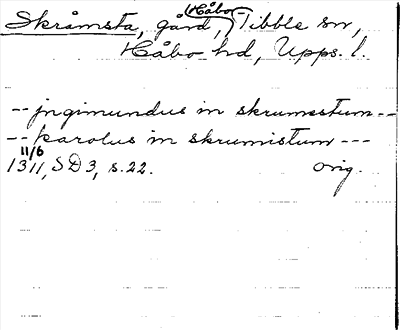 Skråmsta, gård, Håbo-Tibble sn,
Håbo hd, Upps. l.
-- jngimundus in skrumstum --
-- karolus in skrumistum ---
11/6
1311, SD3, s. 22. orig.